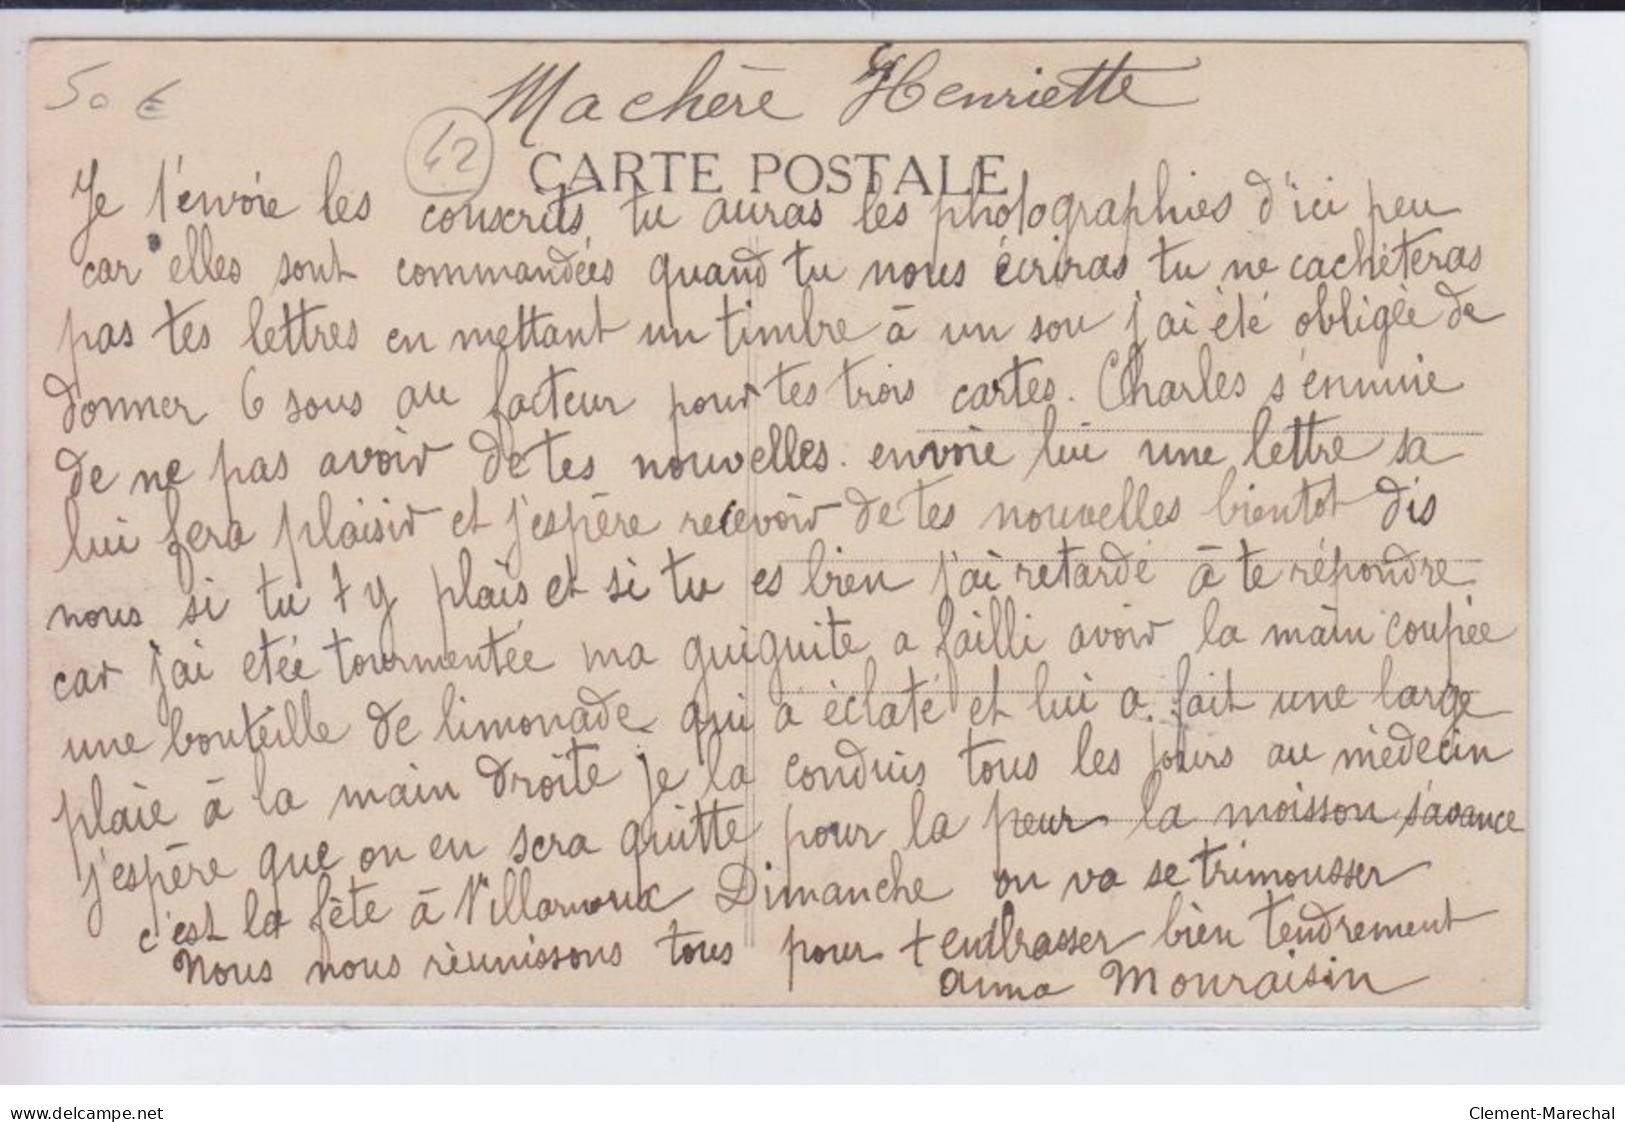 50 €
Machère Henriette
42
CARTE POSTALE
Je t'envoie les conscrits tu auras les photographies d'ici peu
car elles sont commandées quand tu nous écriras tu ne cachèteras
pas tes lettres en mettant un timbre à un sou j'ai été obligée de
donner 6 sous au facteur pour tes trois cartes. Charles s'ennuie
de ne pas avoir de tes nouvelles. envoie lui une lettre sa
lui fera plaisir et j'espère recevoir de tes nouvelles bientot dis
nous si tu t y plais et si tu es bien j'ai retardé à te répondre
car j'ai etée tourmentée ma guiguite a failli avoir la main coupée
une bouteille de limonade qui a éclaté et lui a fait une large
plaie à la main droite je la conduis tous les jours au médecin
j'espère que on en sera quitte pour la peur la moisson s'avance
c'est la fête à Dimanche on va se trimousser
Nous nous réunissons tous pour t embrasser bien tendrement
anna Mouraisin
www.delcampe.net
Clement-Marechal